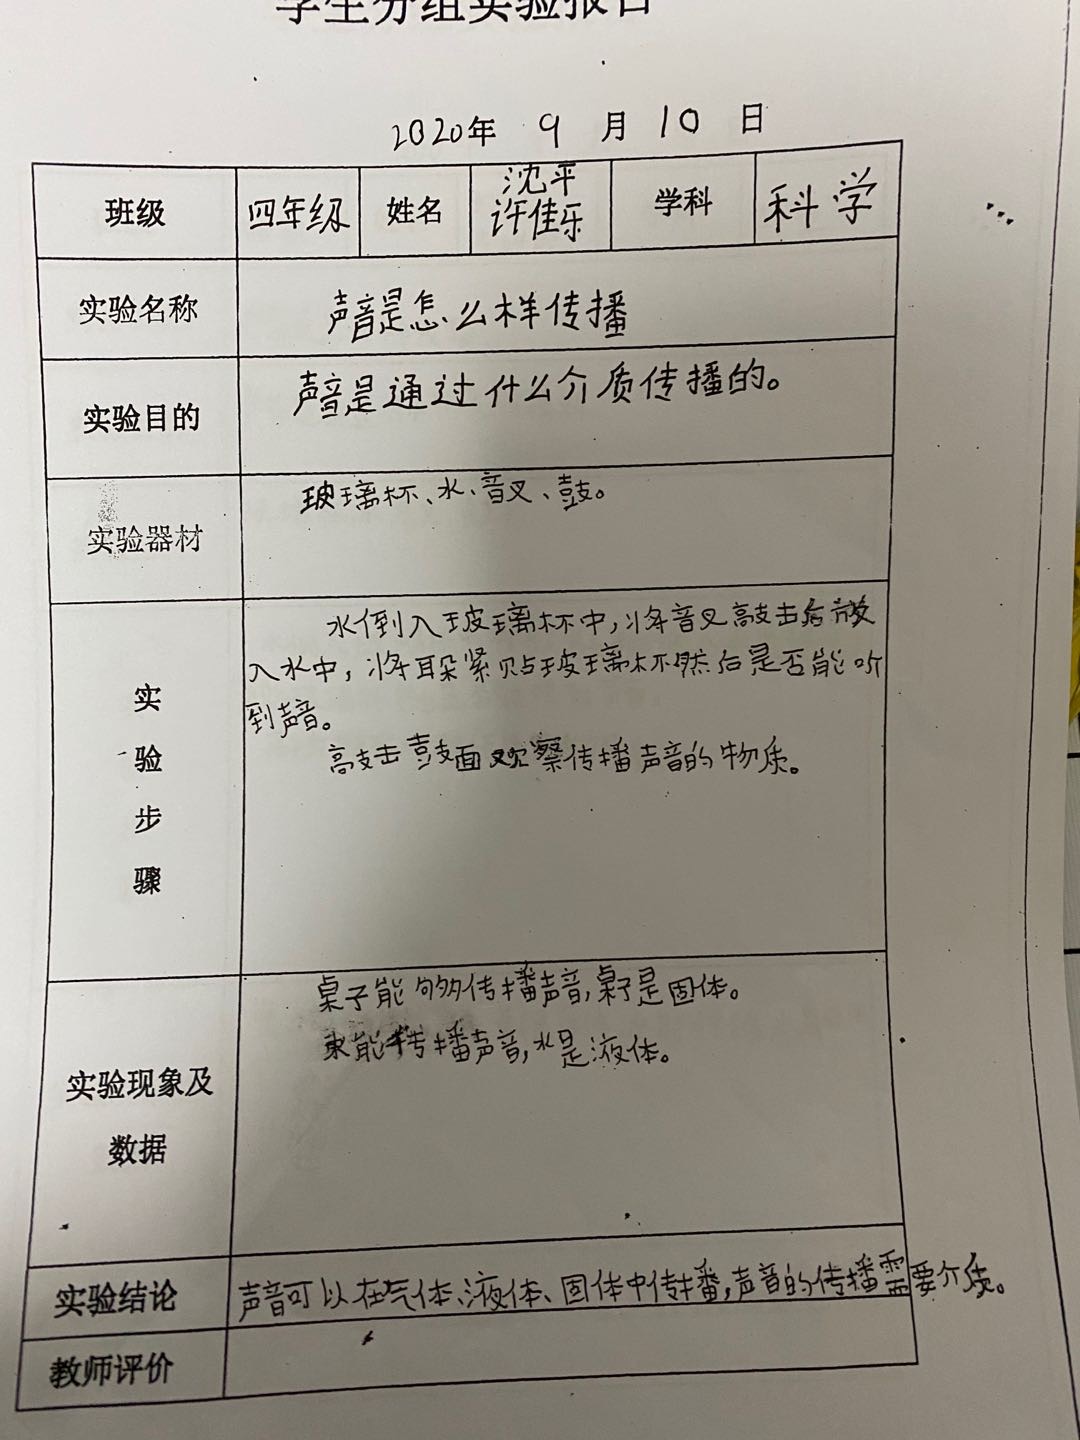 学生分组实验报告
2020年 9 月 10 日
班级 四年级 姓名 沈平 许佳乐 学科 科学
实验名称 声音是怎么样传播
实验目的 声音是通过什么介质传播的。
实验器材 玻璃杯、水、音叉、鼓。
实验步骤
水倒入玻璃杯中,将音叉敲击后放
入水中,将耳朵紧贴玻璃杯然后是否能听
到声音。
敲击鼓面观察传播声音的物质。
实验现象及数据
桌子能够传播声音,桌子是固体。
水能传播声音,水是液体。
实验结论 声音可以在气体、液体、固体中传播,声音的传播需要介质。
教师评价